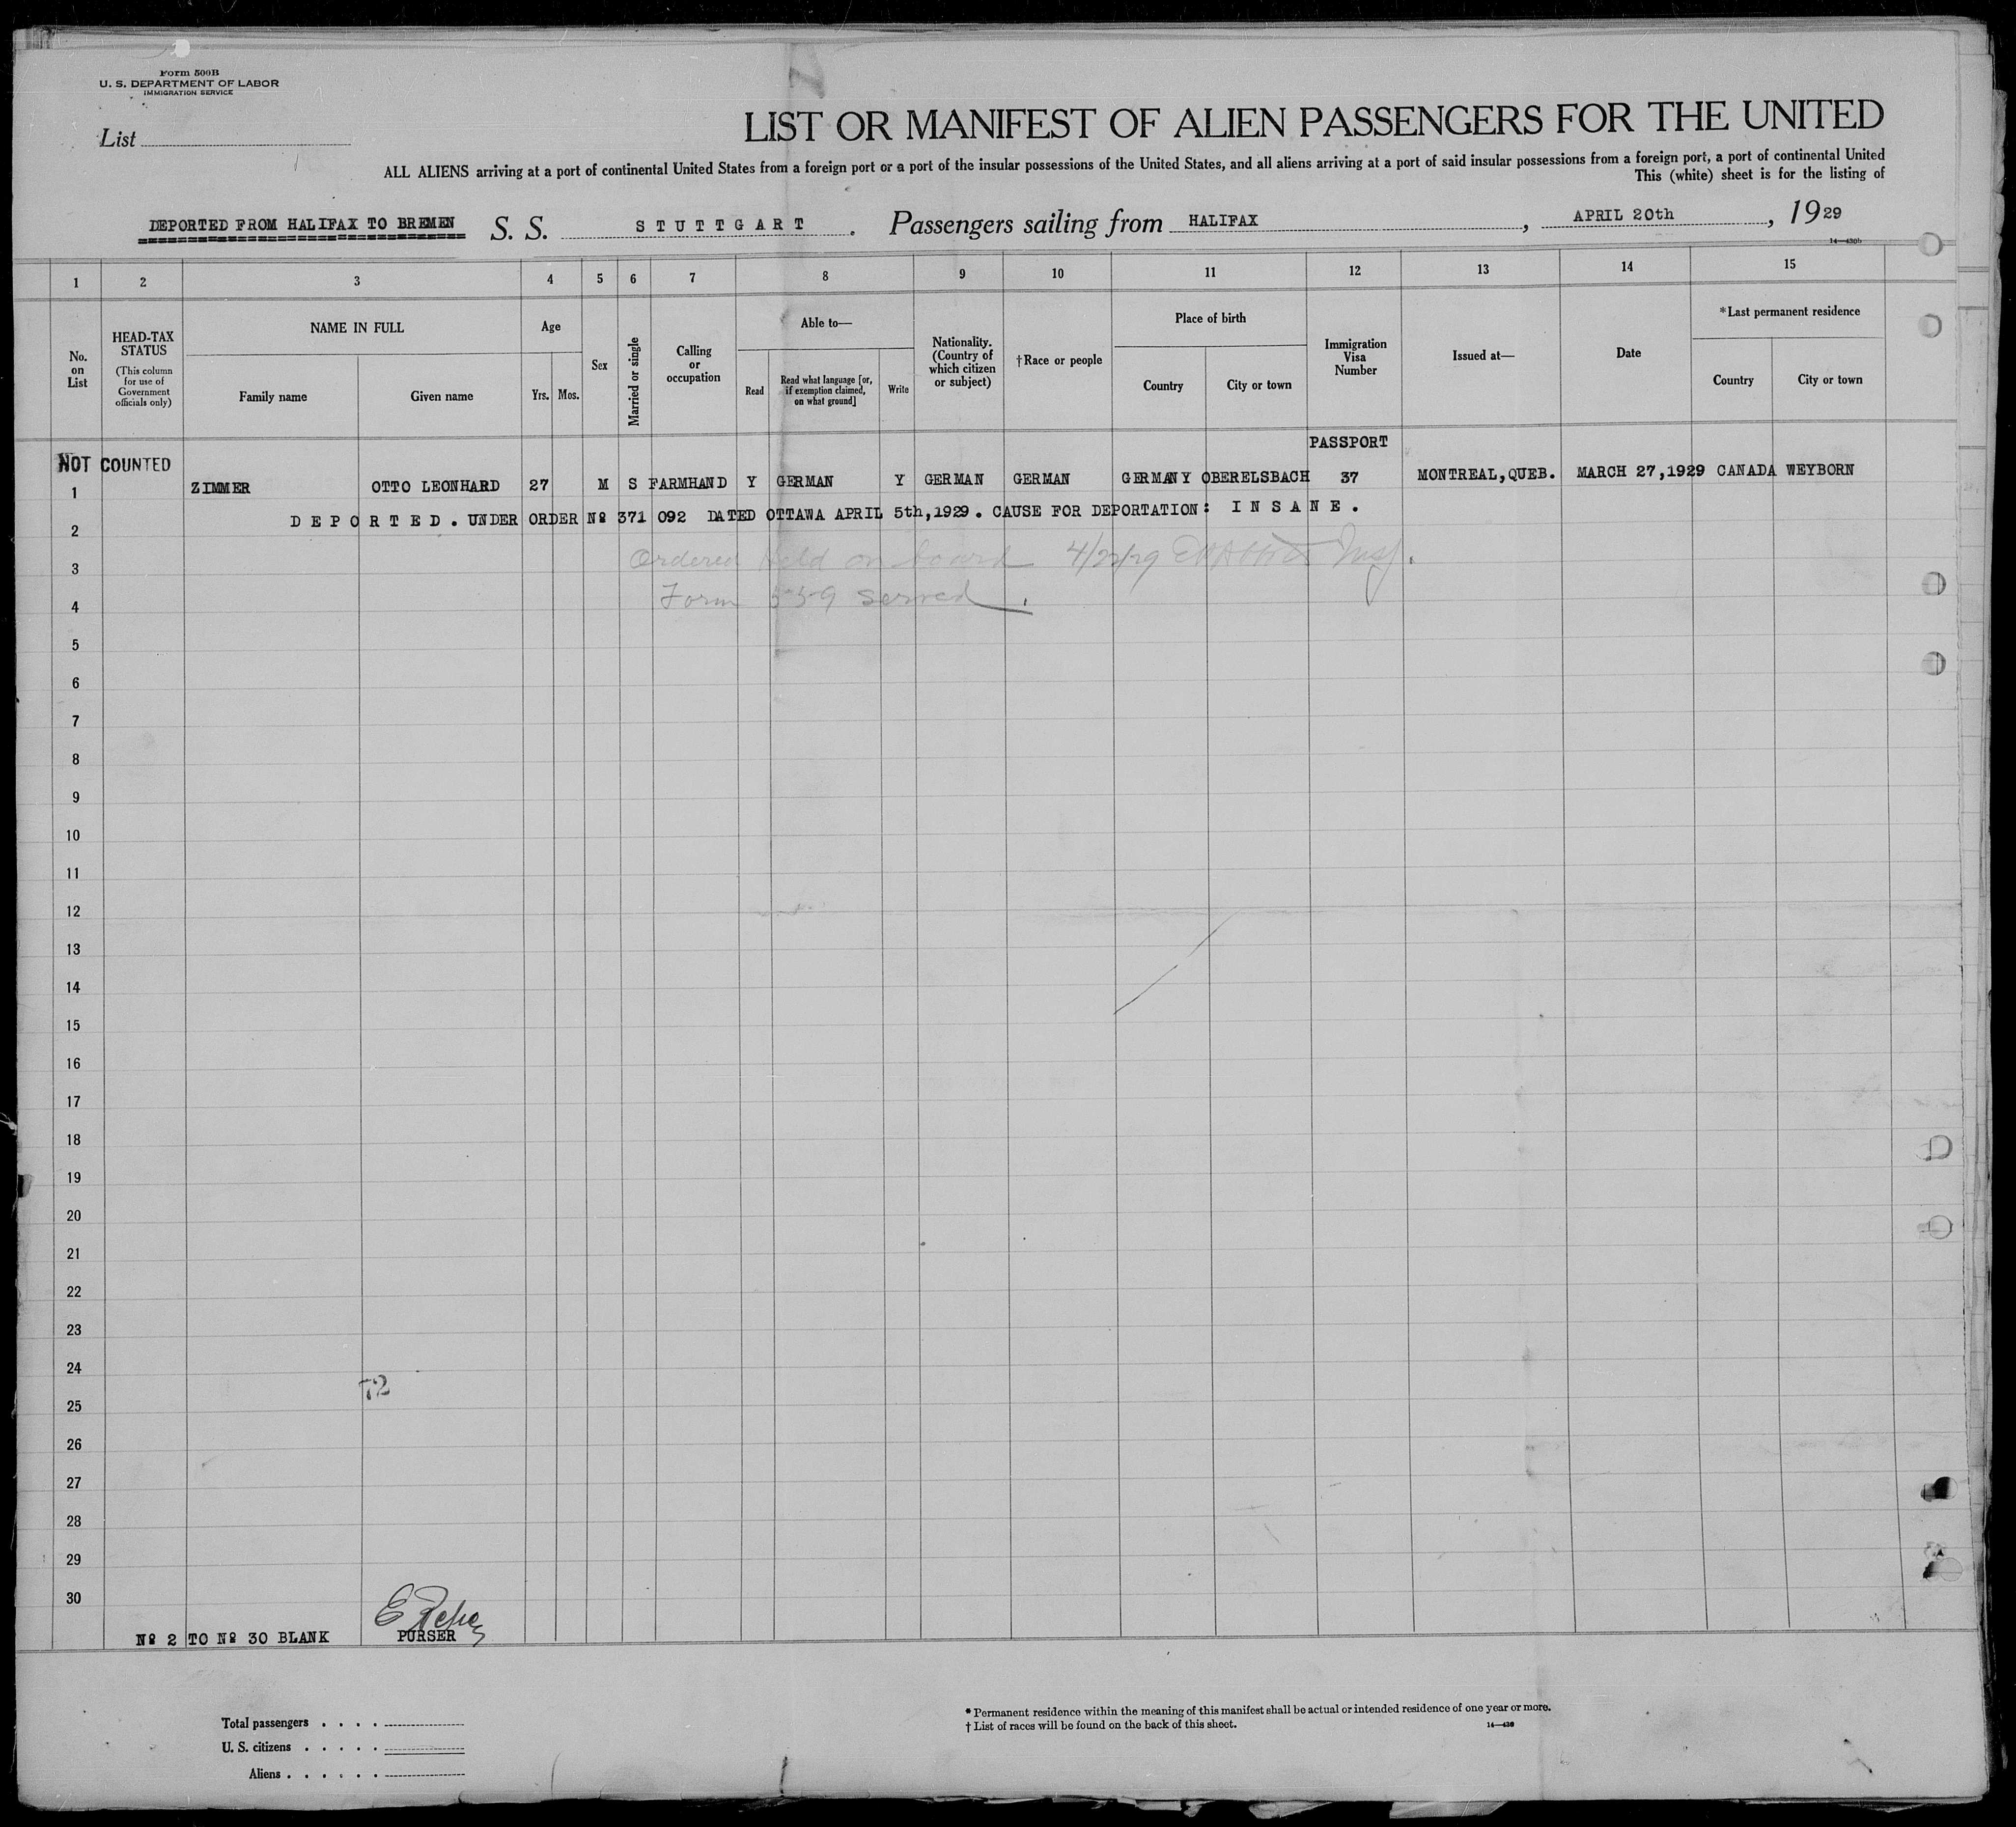 Form 500B
U. S. DEPARTMENT OF LABOR
IMMIGRATION SERVICE
List
LIST OR MANIFEST OF ALIEN PASSENGERS FOR THE UNITED
ALL ALIENS arriving at a port of continental United States from a foreign port or a port of the insular possessions of the United States, and all aliens arriving at a port of said insular possessions from a foreign port, a port of continental United
This (white) sheet is for the listing of
DEPORTED FROM HALIFAX TO BREMEN S. S. STUTTGART . Passengers sailing from HALIFAX , APRIL 20th , 1929
14—430b
1 2 3 4 5 6 7 8 9 10 11 12 13 14 15
No. on List
HEAD-TAX STATUS (This column for use of Government officials only)
NAME IN FULL
Family name
Given name
Age
Yrs. Mos.
Sex
Married or single
Calling or occupation
Able to—
Read
Read what language [or, if exemption claimed, on what ground]
Write
Nationality. (Country of which citizen or subject)
†Race or people
Place of birth
Country
City or town
Immigration Visa Number
Issued at—
Date
*Last permanent residence
Country
City or town
PASSPORT
NOT COUNTED
1 ZIMMER OTTO LEONHARD 27 M S FARMHAND Y GERMAN Y GERMAN GERMAN GERMANY OBERELSBACH 37 MONTREAL,QUEB. MARCH 27,1929 CANADA WEYBORN
DEPORTED. UNDER ORDER Nº 371 092 DATED OTTAWA APRIL 5th,1929. CAUSE FOR DEPORTATION: INSANE.
2
Ordered held on board 4/22/29 Insp.
3
Form 559 served.
4
5
6
7
8
9
10
11
12
13
14
15
16
17
18
19
20
21
22
23
24
72
25
26
27
28
29
30
Nº 2 TO Nº 30 BLANK PURSER
Total passengers . . . .
U. S. citizens . . . . .
Aliens . . . . . .
* Permanent residence within the meaning of this manifest shall be actual or intended residence of one year or more.
† List of races will be found on the back of this sheet.
14—430